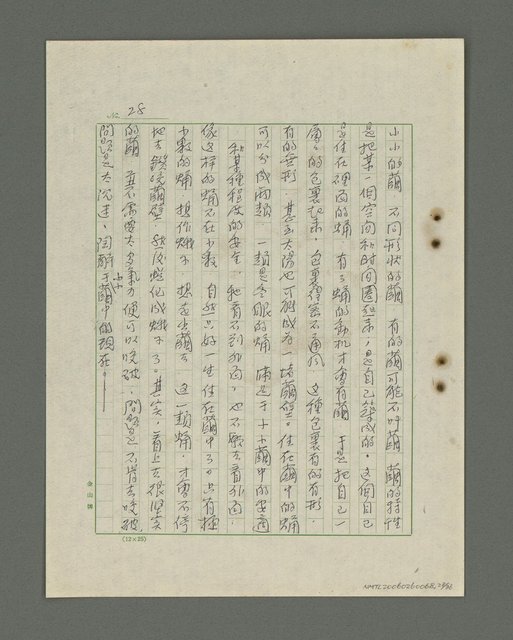 No. 28
小小的繭，不同形狀的繭，有的繭可能不叫繭，繭的特性
是把某一個空間和時間圈起來，是自己築成的。這個自己
是住在裡面的蛹，有了蛹的動機才會有繭，于是把自己一
層層的包裹起來，包裹得密不通風，這種包裹有的有形，
有的無形，甚至太陽也可能成為一堵繭壁。住在繭中的蛹
可以分成兩類，一類是冬眠的蛹，滿足于小小繭中的安適
和某種程度的安全，牠看不到外面，也不願去看外面，
像這樣的蛹不在少數，自然只好一生住在繭中了。只有極
少數的蛹，想作蛾子，想走出繭去，這一類蛹，才會不停
地去
繭壁，然後蛻化成蛾子了。其實，看上去很堅實
的繭，並不需要太多氣力便可以咬破，問題是不肯去咬破，
問題是太沉迷、陶醉于小小繭中的
死。
金山牌
(12×25)
NMTL20060260068